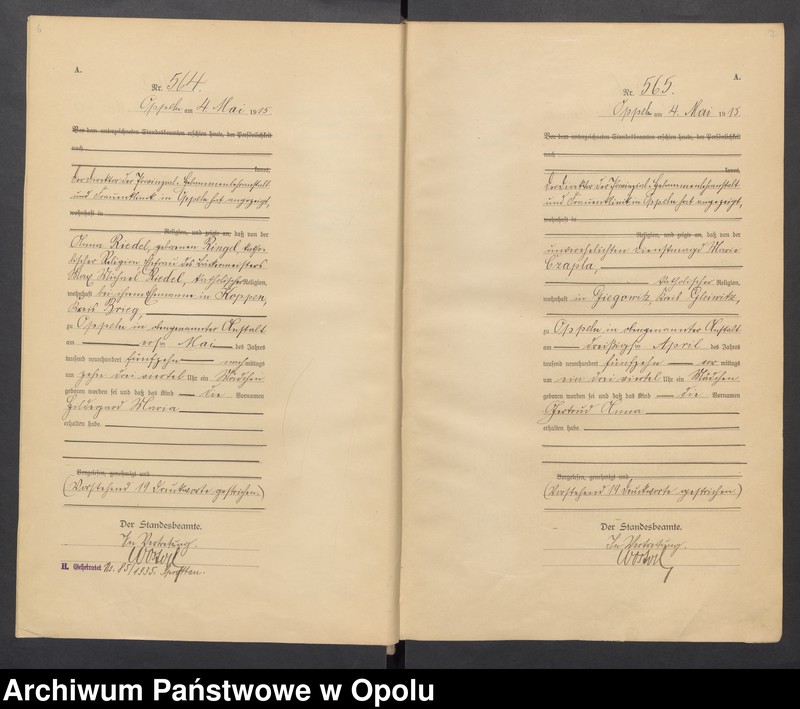 6
A.
Nr. 564.
Oppeln am 4. Mai 1915.
Vor dem unterzeichneten Standesbeamten erschien heute, der Persönlichkeit
nach
kannt,
Der Direktor der Provinzial-Hebammenlehranstalt
und Frauenklinik in Oppeln hat angezeigt,
wohnhaft in
Religion, und zeigte an, daß von der
Anna Riedel, geborenen Ringel, katho-
lischer Religion, Ehefrau des
Max Michael Riedel, katholischer Religion,
wohnhaft bei ihrem Ehemanne in Koppen,
Kreis Brieg,
zu Oppeln in obengenannter Anstalt
am ersten Mai des Jahres
tausend neunhundert fünfzehn nachmittags
um zehn drei viertel Uhr ein Mädchen
geboren worden sei und daß das Kind die Vornamen
Hildegard Maria
erhalten habe.
Vorgelesen, genehmigt und
(Vorstehend 19 Druckworte gestrichen.)
Der Standesbeamte.
In Vertretung.
H. Geheiratet Nr. 85/1935.
7
A.
Nr. 565.
Oppeln am 4. Mai 1915.
Vor dem unterzeichneten Standesbeamten erschien heute, der Persönlichkeit
nach
kannt,
Der Direktor der Provinzial-Hebammenlehranstalt
und Frauenklinik in Oppeln hat angezeigt,
wohnhaft in
Religion, und zeigte an, daß von der
unverehelichten Dienstmagd Marie
Czapla,
katholischer Religion,
wohnhaft in Ziegowitz, Kreis Gleiwitz,
zu Oppeln in obengenannter Anstalt
am dreißigsten April des Jahres
tausend neunhundert fünfzehn vor mittags
um ein drei viertel Uhr ein Mädchen
geboren worden sei und daß das Kind die Vornamen
Gertrud Anna
erhalten habe.
Vorgelesen, genehmigt und
(Vorstehend 19 Druckworte gestrichen.)
Der Standesbeamte.
In Vertretung.
Archiwum Państwowe w Opolu